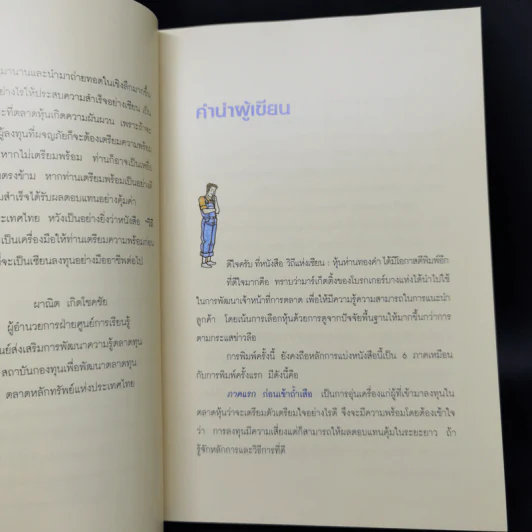 มานานและนำมาถ่ายทอดในเชิงลึกมากขึ้น
ย่างไรให้ประสบความสำเร็จอย่างเซียน เป็น
ะที่ตลาดหุ้นเกิดความผันผวน เพราะถ้าจะ
ผู้ลงทุนที่ผจญภัยก็จะต้องเตรียมความพร้อม
หากไม่เตรียมพร้อม ท่านก็อาจเป็นเหยื่อ
ตรงข้าม หากท่านเตรียมพร้อมเป็นอย่างดี
สำเร็จได้รับผลตอบแทนอย่างคุ้มค่า
ระเทศไทย หวังเป็นอย่างยิ่งว่าหนังสือ "วิถี
เป็นเครื่องมือให้ท่านเตรียมความพร้อมก่อน
ที่จะเป็นเซียนลงทุนอย่างมืออาชีพต่อไป
ผาณิต เกิดโชคชัย
ผู้อำนวยการฝ่ายศูนย์การเรียนรู้
นย์ส่งเสริมการพัฒนาความรู้ตลาดทุน
สถาบันกองทุนเพื่อพัฒนาตลาดทุน
ตลาดหลักทรัพย์แห่งประเทศไทย
คำนำผู้เขียน
ดีใจครับ ที่หนังสือ วิถีแห่งเซียน : หุ้นห่านทองคำ ได้มีโอกาสตีพิมพ์อีก
ที่ดีใจมากคือ ทราบว่ามาร์เก็ตติ้งของโบรกเกอร์บางแห่งได้นำไปใช้
ในการพัฒนาเจ้าหน้าที่การตลาด เพื่อให้มีความรู้ความสามารถในการแนะนำ
ลูกค้า โดยเน้นการเลือกหุ้นด้วยการดูจากปัจจัยพื้นฐานให้มากขึ้นกว่าการ
ตามกระแสข่าวลือ
การพิมพ์ครั้งนี้ ยังคงถือหลักการแบ่งหนังสือนี้เป็น 6 ภาคเหมือน
กับการพิมพ์ครั้งแรก มีดังนี้คือ
ภาคแรก ก่อนเข้าถ้ำเสือ เป็นการอุ่นเครื่องแก่ผู้ที่เข้ามาลงทุนใน
ตลาดหุ้นว่าจะเตรียมตัวเตรียมใจอย่างไรดี จึงจะมีความพร้อมโดยต้องเข้าใจ
ว่า การลงทุนมีความเสี่ยงแต่ก็สามารถให้ผลตอบแทนคุ้มในระยะยาว ถ้า
รู้จักหลักการและวิธีการที่ดี